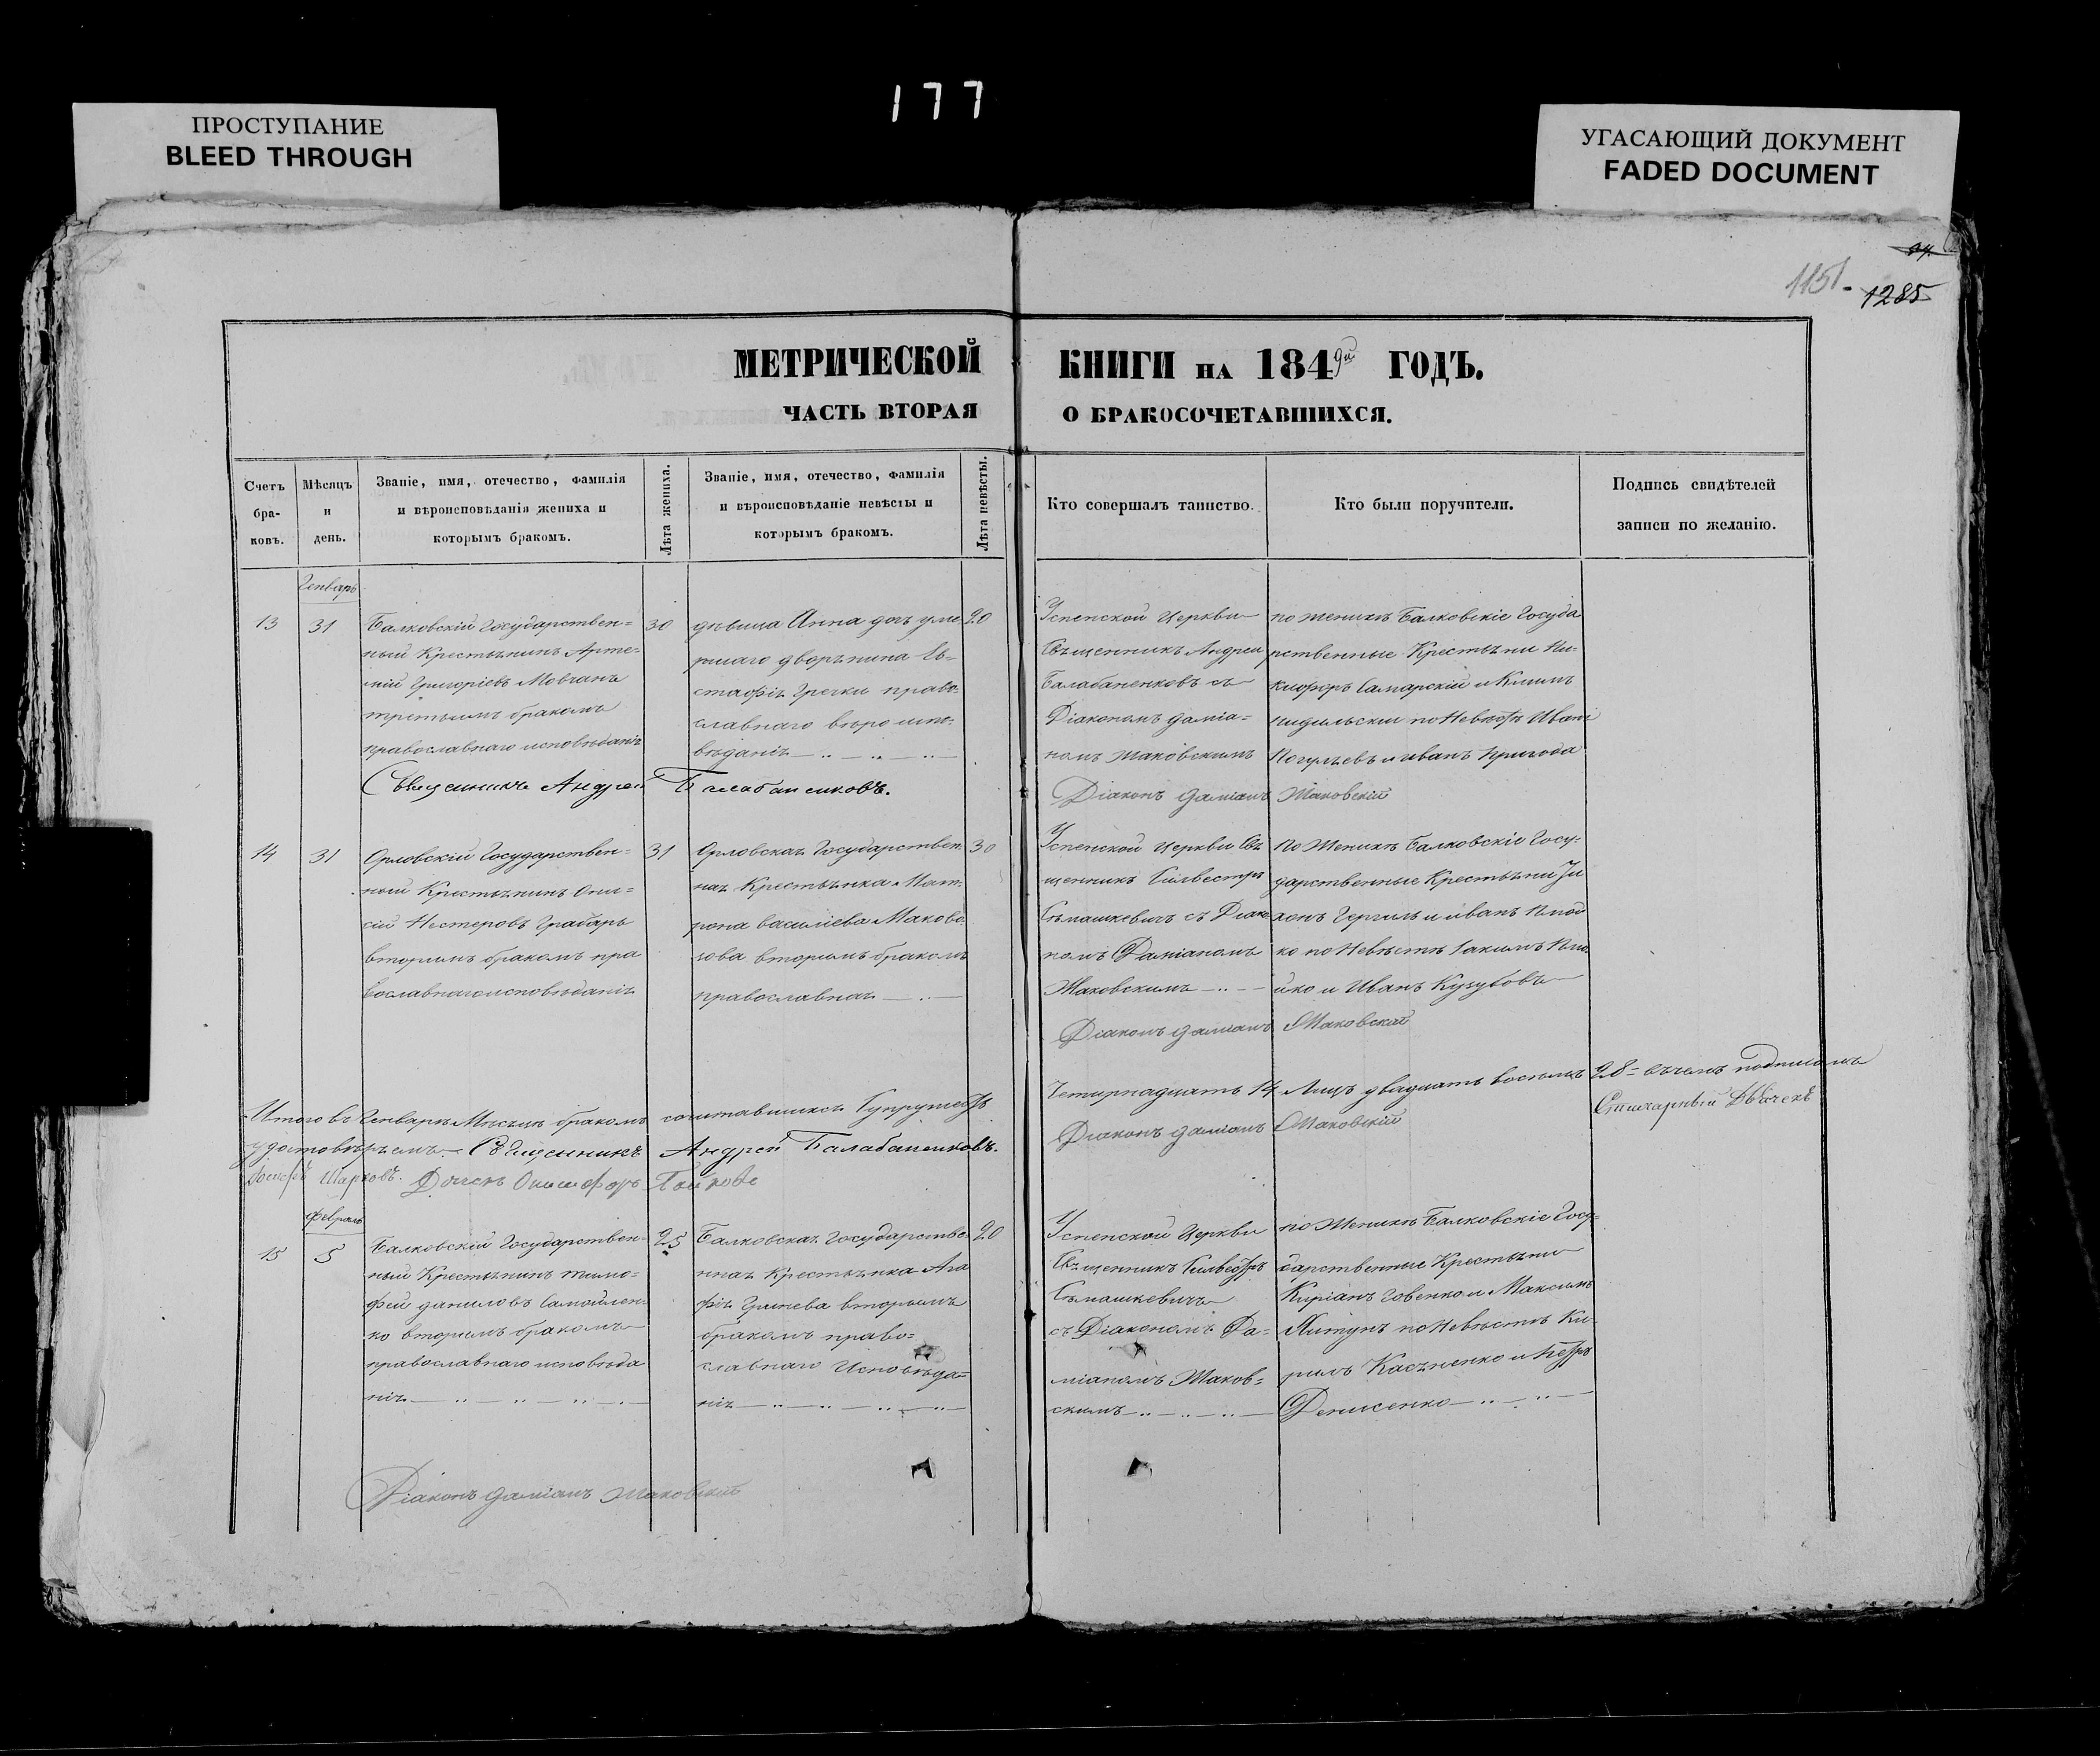 177
ПРОСТУПАНИЕ
BLEED THROUGH
УГАСАЮЩИЙ ДОКУМЕНТ
FADED DOCUMENT
1151.
1285
МЕТРИЧЕСКОЙ КНИГИ НА 1849й ГОДЪ.
ЧАСТЬ ВТОРАЯ О БРАКОСОЧЕТАВШИХСЯ.
Счетъ
бра-
ковъ.
Мѣсяцъ
и
день.
Званіе, имя, отечество, фамилія
и вѣроисповѣданія жениха и
которымъ бракомъ.
Лѣта жениха.
Званіе, имя, отечество, фамилія
и вѣроисповѣданіе невѣсты и
которымъ бракомъ.
Лѣта невѣсты.
Кто совершалъ таинство.
Кто были поручители.
Подпись свидѣтелей
записи по желанію.
Генварь
13
31
Балковскій Государствен=
ный Крестьянинъ Арте=
мій Григоріевъ Мовчанъ
третьимъ бракомъ
православнаго исповѣданія
30
дѣвица Анна дочь уме
ршаго дворянина Ев=
стафія Гречки право=
славнаго вѣро испо=
вѣданія
20
Успенской Церкви
Священникъ Андрей
Балабаненковъ съ
Діакономъ Даміа=
номъ Маковскимъ
по женихѣ Балковскіе Госуда
рственные Крестьяни Ни=
кифоръ Самарскій и Климъ
по Невѣстѣ Иванъ
и иванъ Пригода
Священникъ Андрей Балабаненковъ.
Діаконъ Даміанъ Маковскій
14
31
Орловскій Государствен=
ный Крестьянинъ Они=
сій Нестеровъ Грабарь
вторымъ бракомъ пра
вославнаго исповѣданія
31
Орловская Государствен
ная Крестьянка Мат=
рона василіева Маково
зова вторымъ бракомъ
православная
30
Успенской Церкви Свя
щенникъ Силвестръ
Сѣмашкевичъ съ Діако
номъ Даміаномъ
Маковскимъ
По Женихѣ Балковскіе Госу=
дарственные Крестьяни
и иванъ
ко по Невѣстѣ
йко и Иванъ Кузубовъ
Діаконъ Даміанъ Маковскій
Итого въ Генварѣ Мѣсяцѣ бракомъ сочитавшихся Супружествъ Четирнадцать 14 Лицъ двадцать восемь 28= въ чемъ подписомъ
удостовѣряемъ. Священникъ Андрей Балабаненковъ.
Діаконъ Даміанъ Маковскій
Дячекъ
февраль
15
5
Балковскій Государствен=
ный Крестьянинъ тимо=
фей даниловъ Самойлен=
ко вторымъ бракомъ
православнаго исповѣда
нія
25
Балковская Государстве
нная Крестьянка Ага
фія Гринева вторымъ
бракомъ право=
славнаго Исповѣда=
нія
20
Успенской Церкви
Священникъ Силвестръ
Сѣмашкевичъ
съ Діакономъ Да=
міаномъ Маков=
скимъ
по Женихѣ Балковскіе Госу=
дарственные Крестьяни
Киріанъ Говенко и Максимъ
по Невѣстѣ Ки=
рилъ Касяненко и Петръ
Денисенко
Діаконъ Даміанъ Маковскій